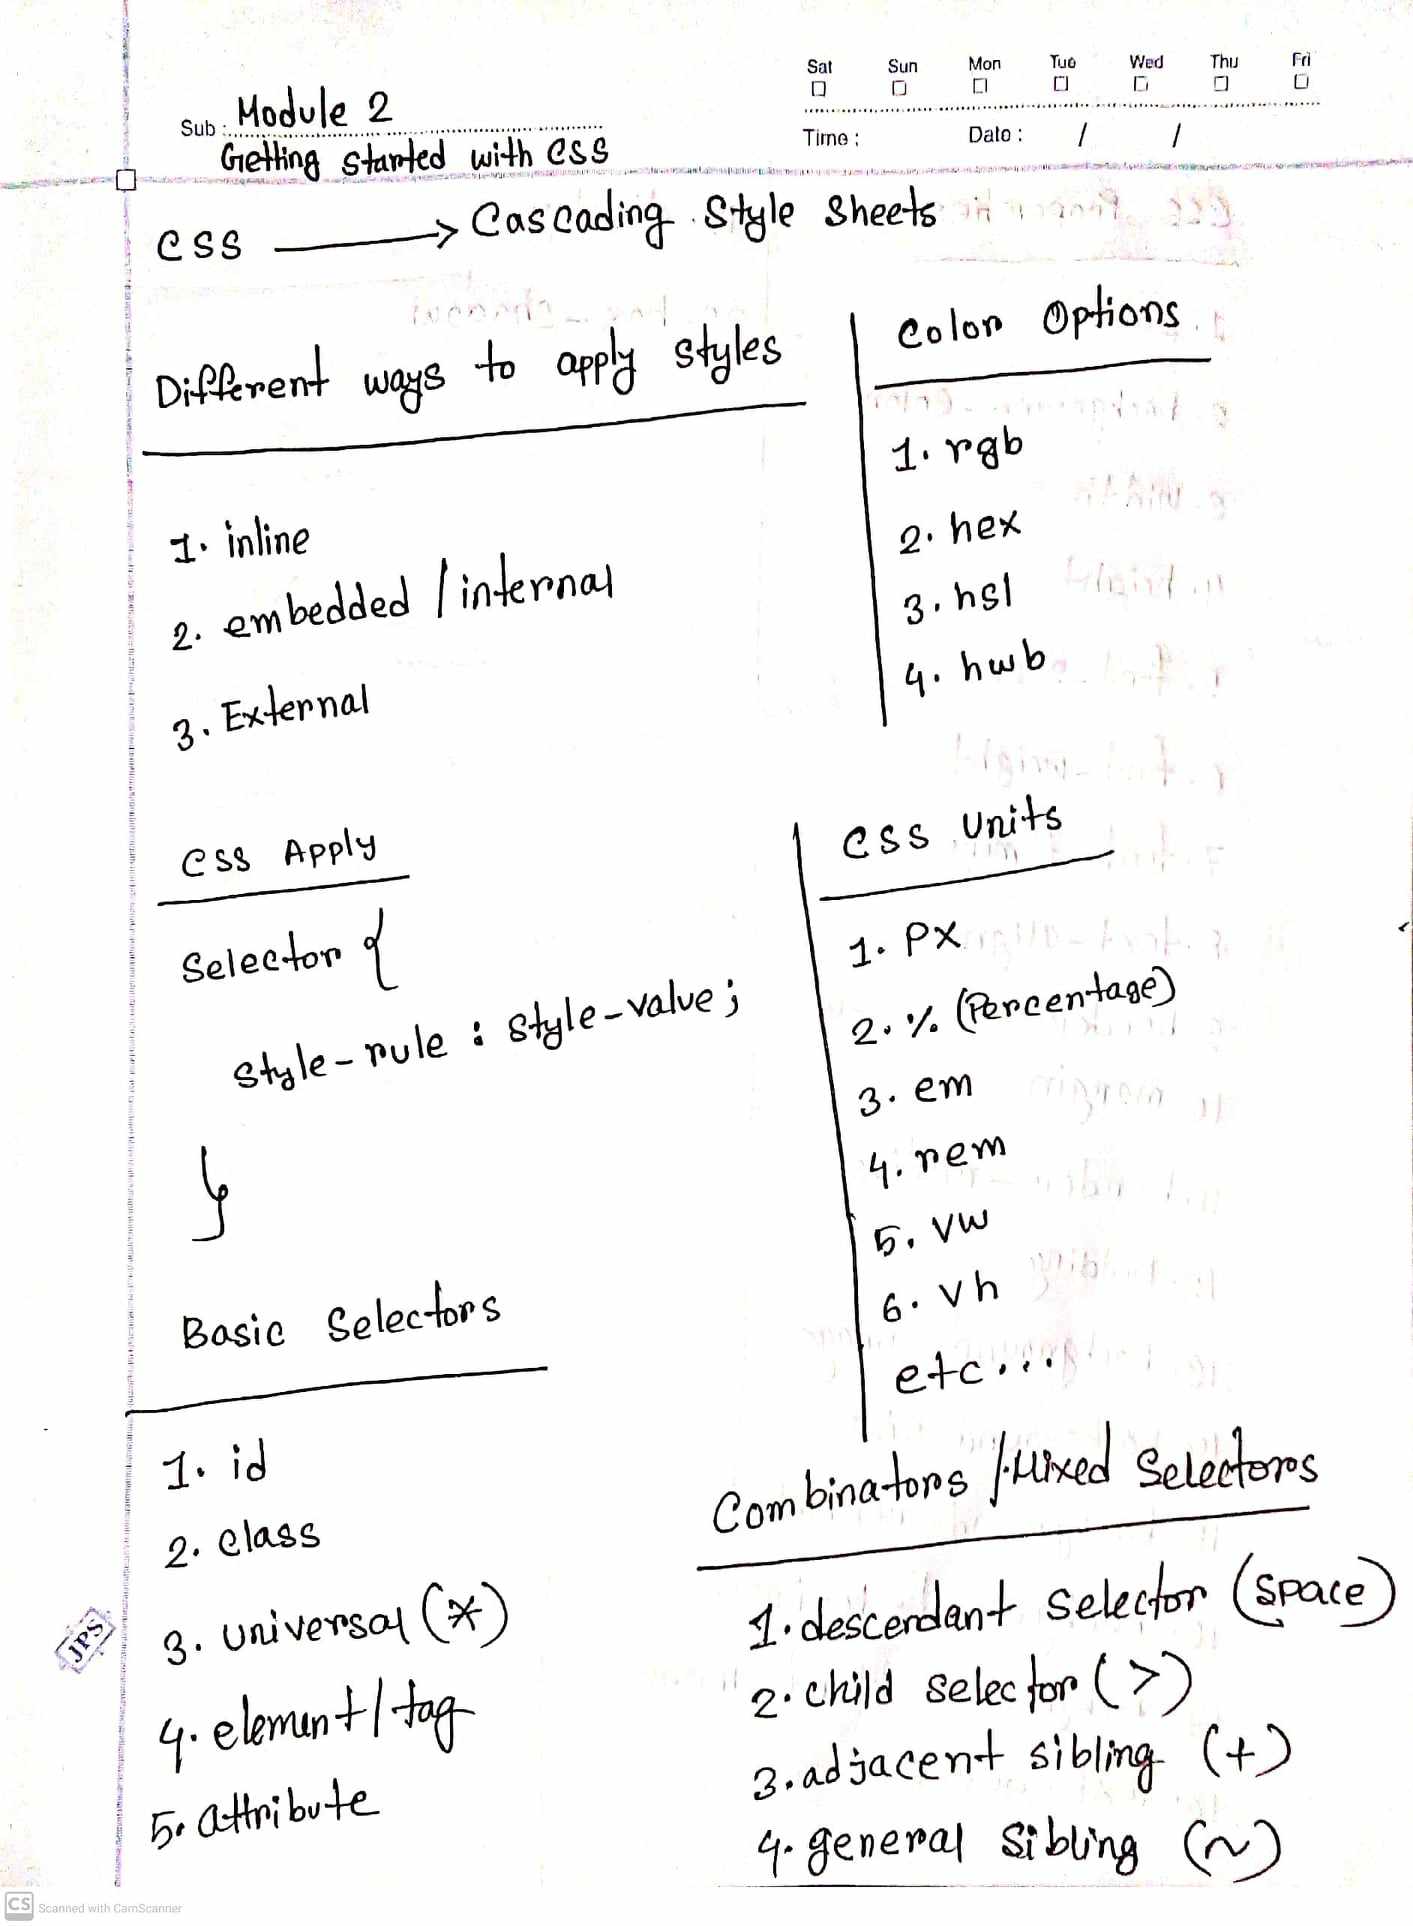 Sat Sun Mon Tue Wed Thu Fri
Sub : Module 2
Time : Date : / /
Getting started with CSS
CSS → Cascading Style Sheets
Different ways to apply styles
1. inline
2. embedded / internal
3. External
Color Options
1. rgb
2. hex
3. hsl
4. hwb
CSS Apply
Selector {
style-rule : style-value;
}
CSS Units
1. px
2. % (Percentage)
3. em
4. rem
5. vw
6. vh
etc...
Basic Selectors
1. id
2. class
3. universal (*)
4. element / tag
5. attribute
Combinators / Mixed Selectors
1. descendant selector (space)
2. child selector (>)
3. adjacent sibling (+)
4. general sibling (~)
JPS
CS Scanned with CamScanner